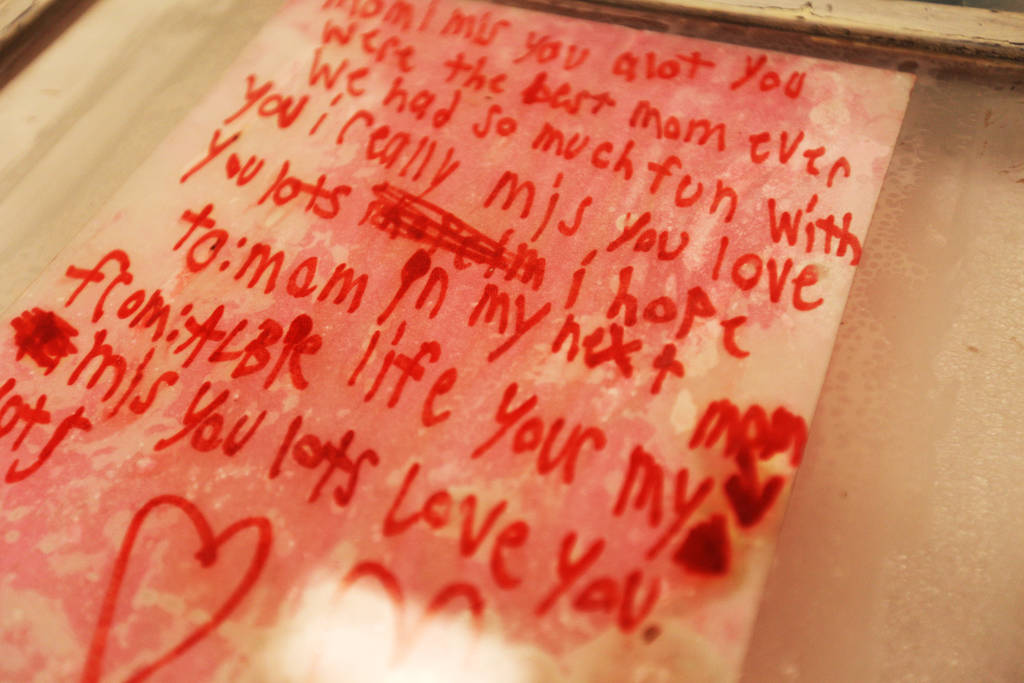 mom i mis you alot you
were the best mom ever
We had so much fun with
you i really mis you love
you lots i hope
to: mom in my next
from: life your my mom
mis you lots Love you
lots